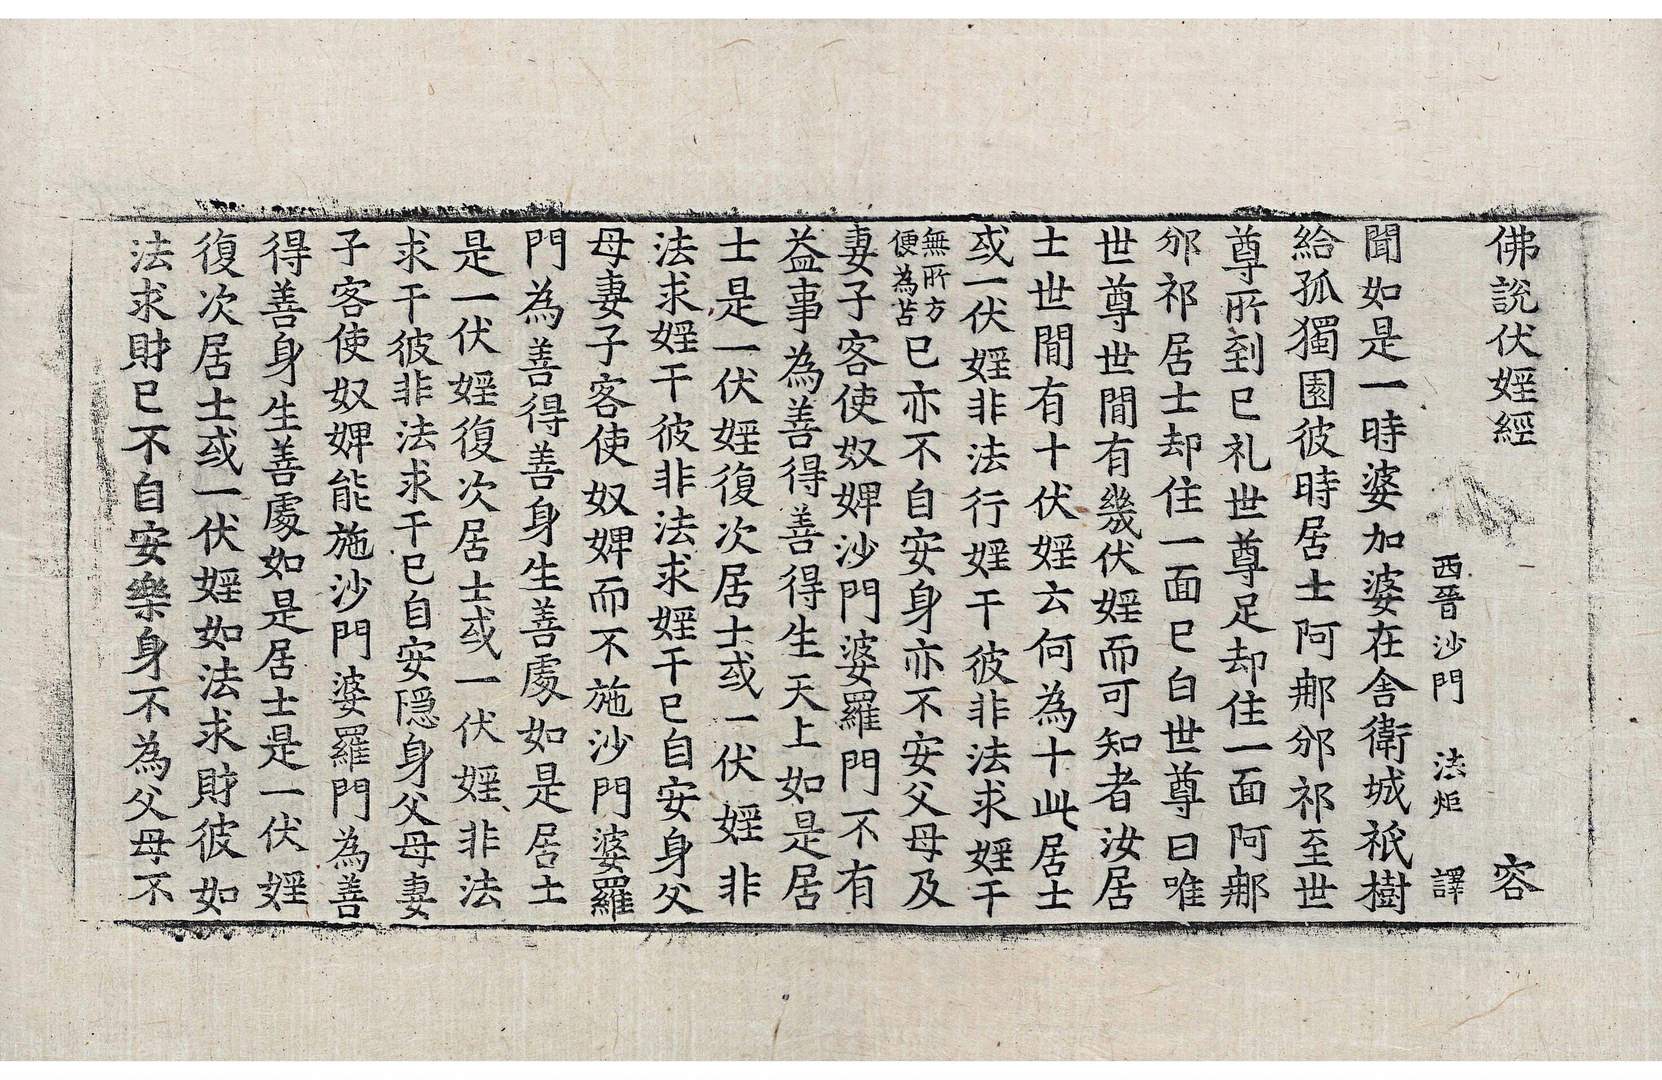 佛說伏婬經 容
西晉沙門 法炬 譯
聞如是一時婆加婆在舍衛城祇樹
給孤獨園彼時居士阿𨚗邠祁至世
尊所到已礼世尊足却住一面阿𨚗
邠祁居士却住一面已白世尊曰唯
世尊世閒有幾伏婬而可知者汝居
士世閒有十伏婬云何為十此居士
或一伏婬非法行婬干彼非法求婬干
無所方便為苦已亦不自安身亦不安父母及
妻子客使奴婢沙門婆羅門不有
益事為善得善得生天上如是居
士是一伏婬復次居士或一伏婬非
法求婬干彼非法求婬干已自安身父
母妻子客使奴婢而不施沙門婆羅
門為善得善身生善處如是居士
是一伏婬復次居士或一伏婬非法
求干彼非法求干已自安隱身父母妻
子客使奴婢能施沙門婆羅門為善
得善身生善處如是居士是一伏婬
復次居士或一伏婬如法求財彼如
法求財已不自安樂身不為父母不